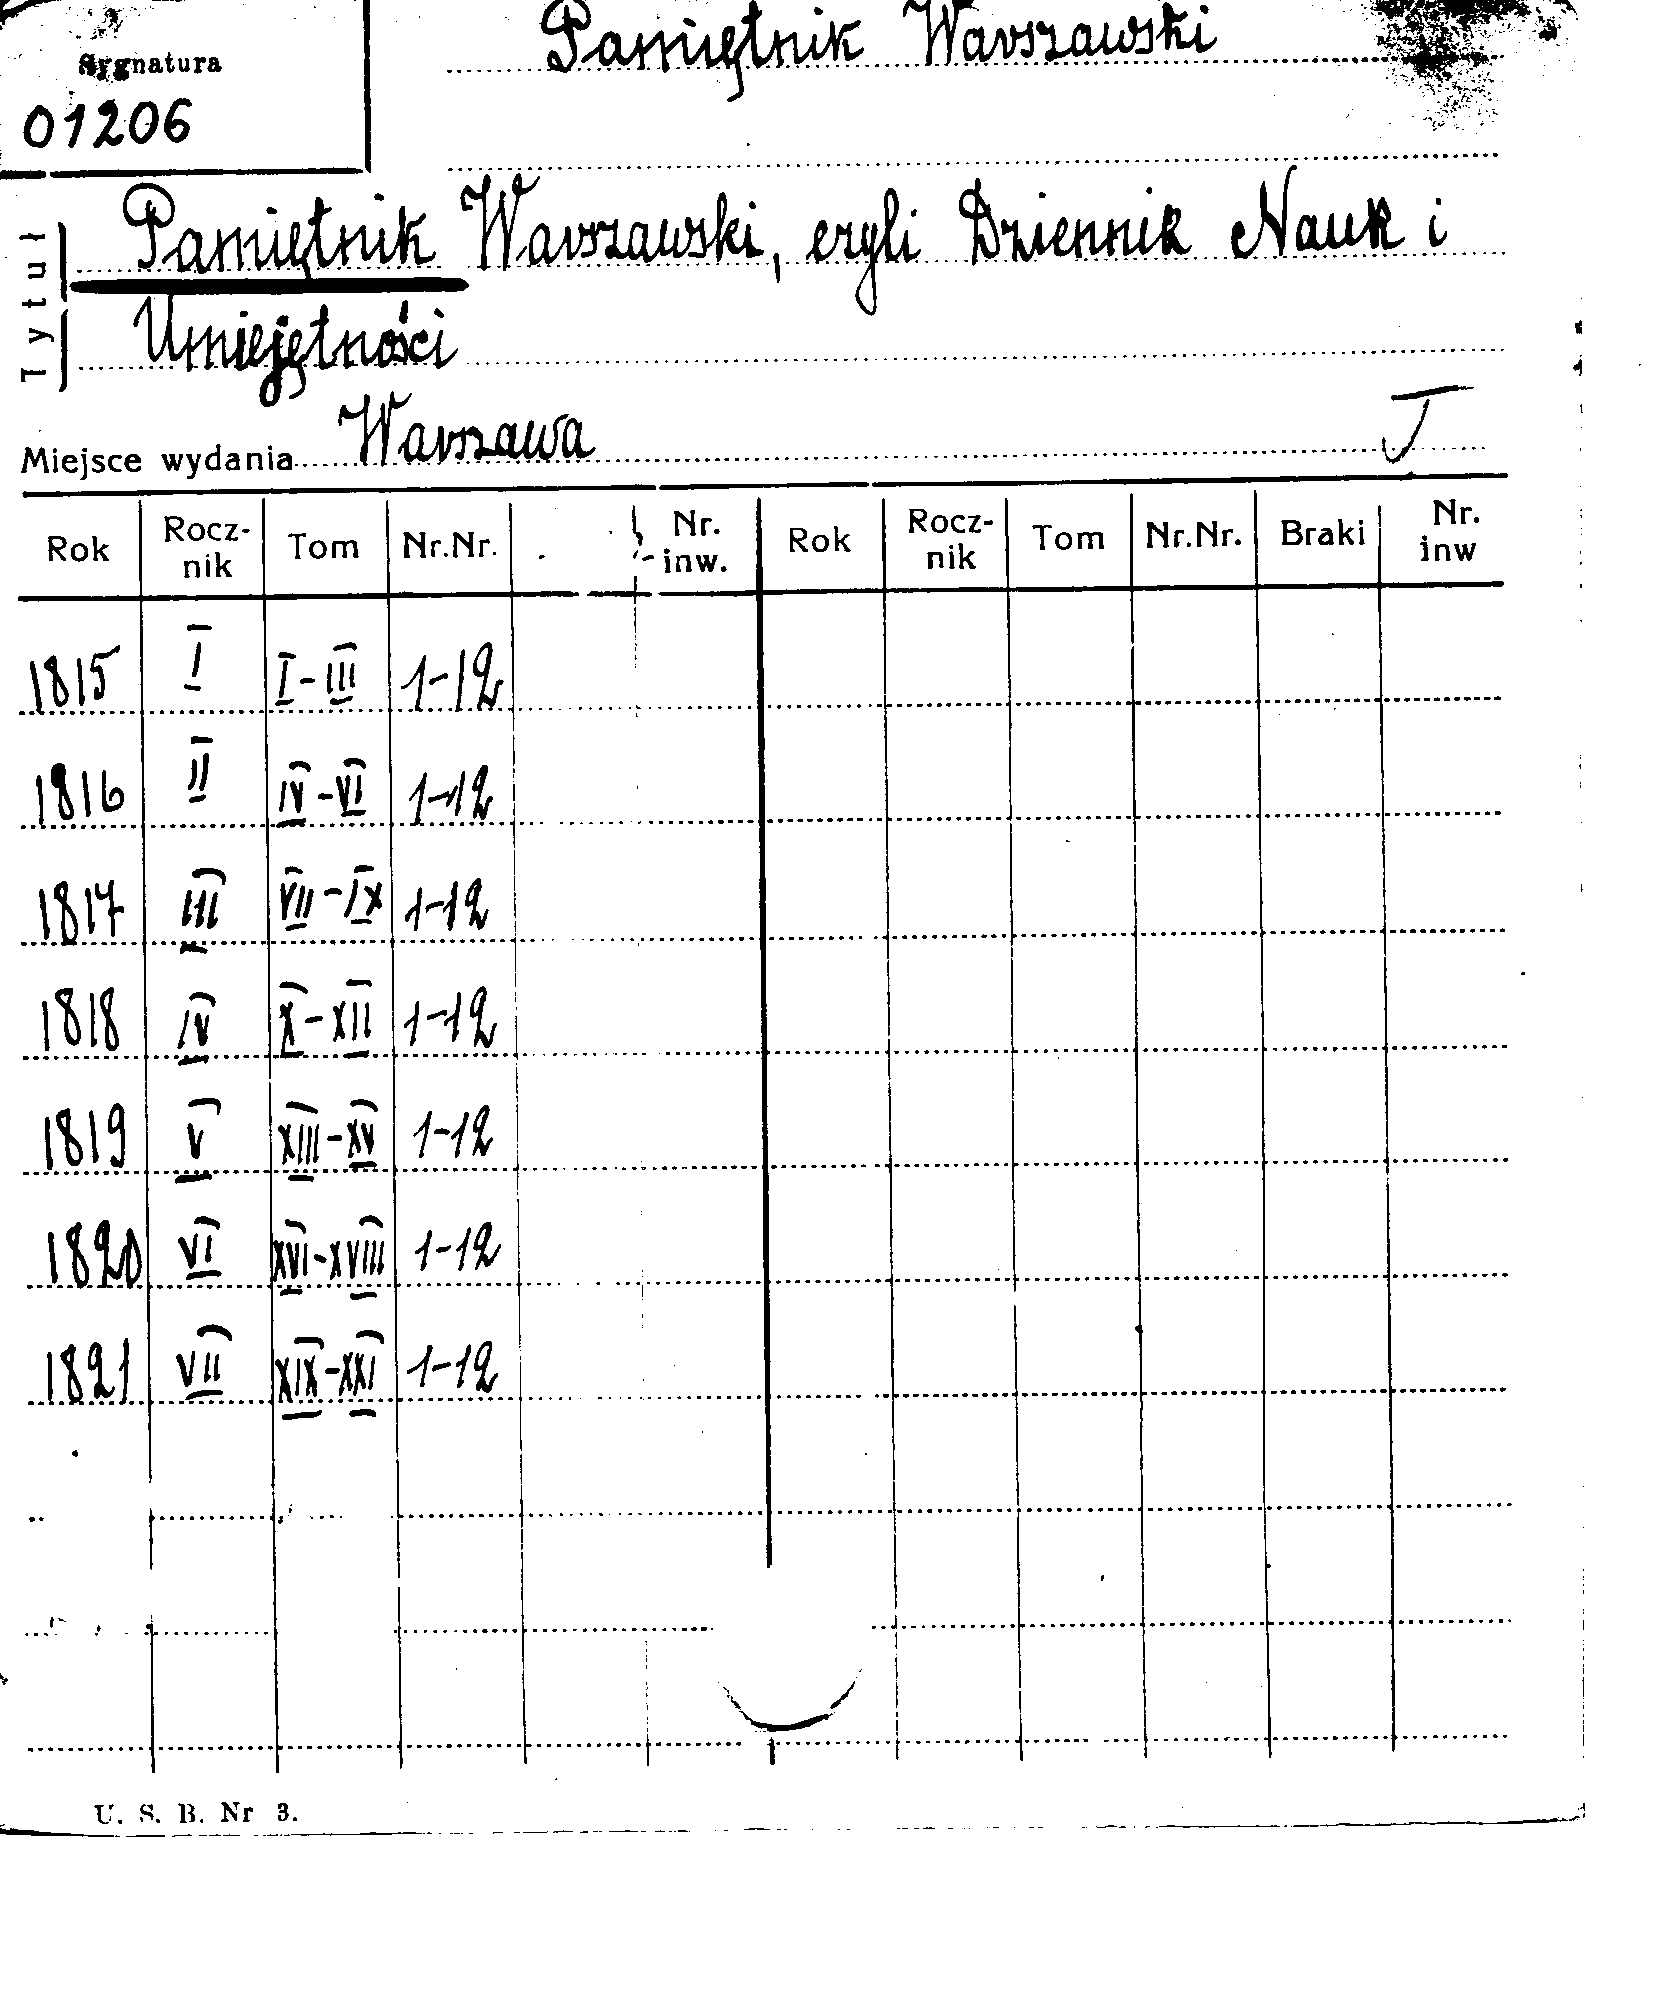 Pamiętnik Warszawski
Sygnatura
01206
Tytuł
Pamiętnik Warszawski, czyli Dziennik Nauk i
Umiejętności
Miejsce wydania Warszawa
Rok Rocz-nik Tom Nr.Nr. Nr. inw. Rok Rocz-nik Tom Nr.Nr. Braki Nr. inw
1815 I I-III 1-12
1816 II IV-VI 1-12
1817 III VII-IX 1-12
1818 IV X-XII 1-12
1819 V XIII-XV 1-12
1820 VI XVI-XVIII 1-12
1821 VII XIX-XXI 1-12
U. S. B. Nr 3.